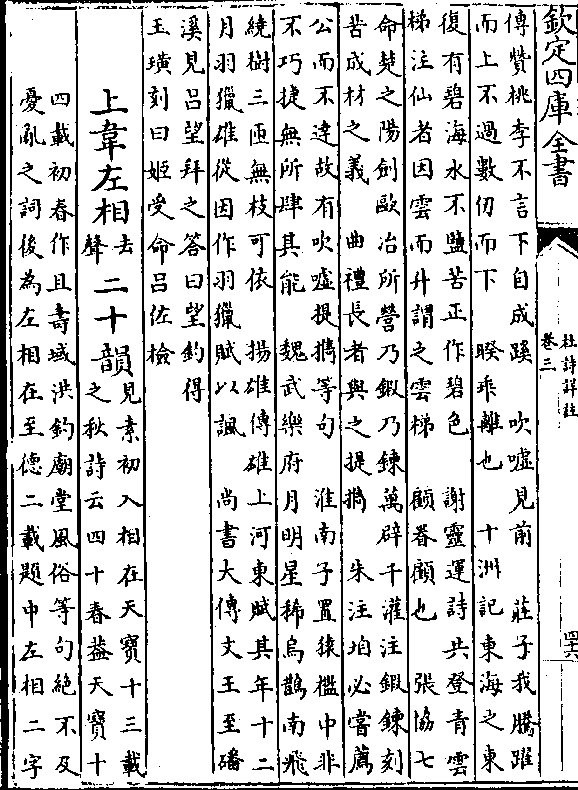 欽定四庫全書
杜詩詳註
卷三
四六
傳贊桃李不言下自成蹊　吹噓見前　莊子我騰躍
而上不過數仞而下　暌乖離也　十洲記東海之東
復有碧海水不鹽苦正作碧色　謝靈運詩共登青雲
梯注仙者因雲而升謂之雲梯　顧眷顧也　張協七
命楚之陽劍歐冶所營乃鍛乃鍊萬辟千灌注鍛鍊刻
苦成材之義　曲禮長者與之提攜　朱注垍必嘗薦
公而不達故有吹噓提攜等句　淮南子置猿檻中非
不巧捷無所肆其能　魏武樂府月明星稀烏鵲南飛
繞樹三匝無枝可依　揚雄傳雄上河東賦其年十二
月羽獵雄從因作羽獵賦以諷　尚書大傳文王至磻
溪見呂望拜之答曰望釣得
玉璜刻曰姬受命呂佐檢
上韋左相去聲二十韻見素初入相在天寶十三載
之秋詩云四十春葢天寶十
四載初春作且壽域洪鈞廟堂風俗等句絶不及
憂亂之詞後為左相在至德二載題中左相二字